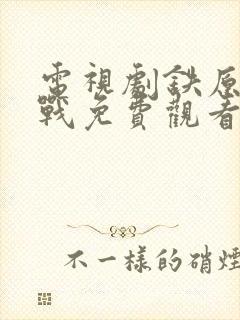 電視劇鉄原
戰免費觀看
不一樣的硝煙